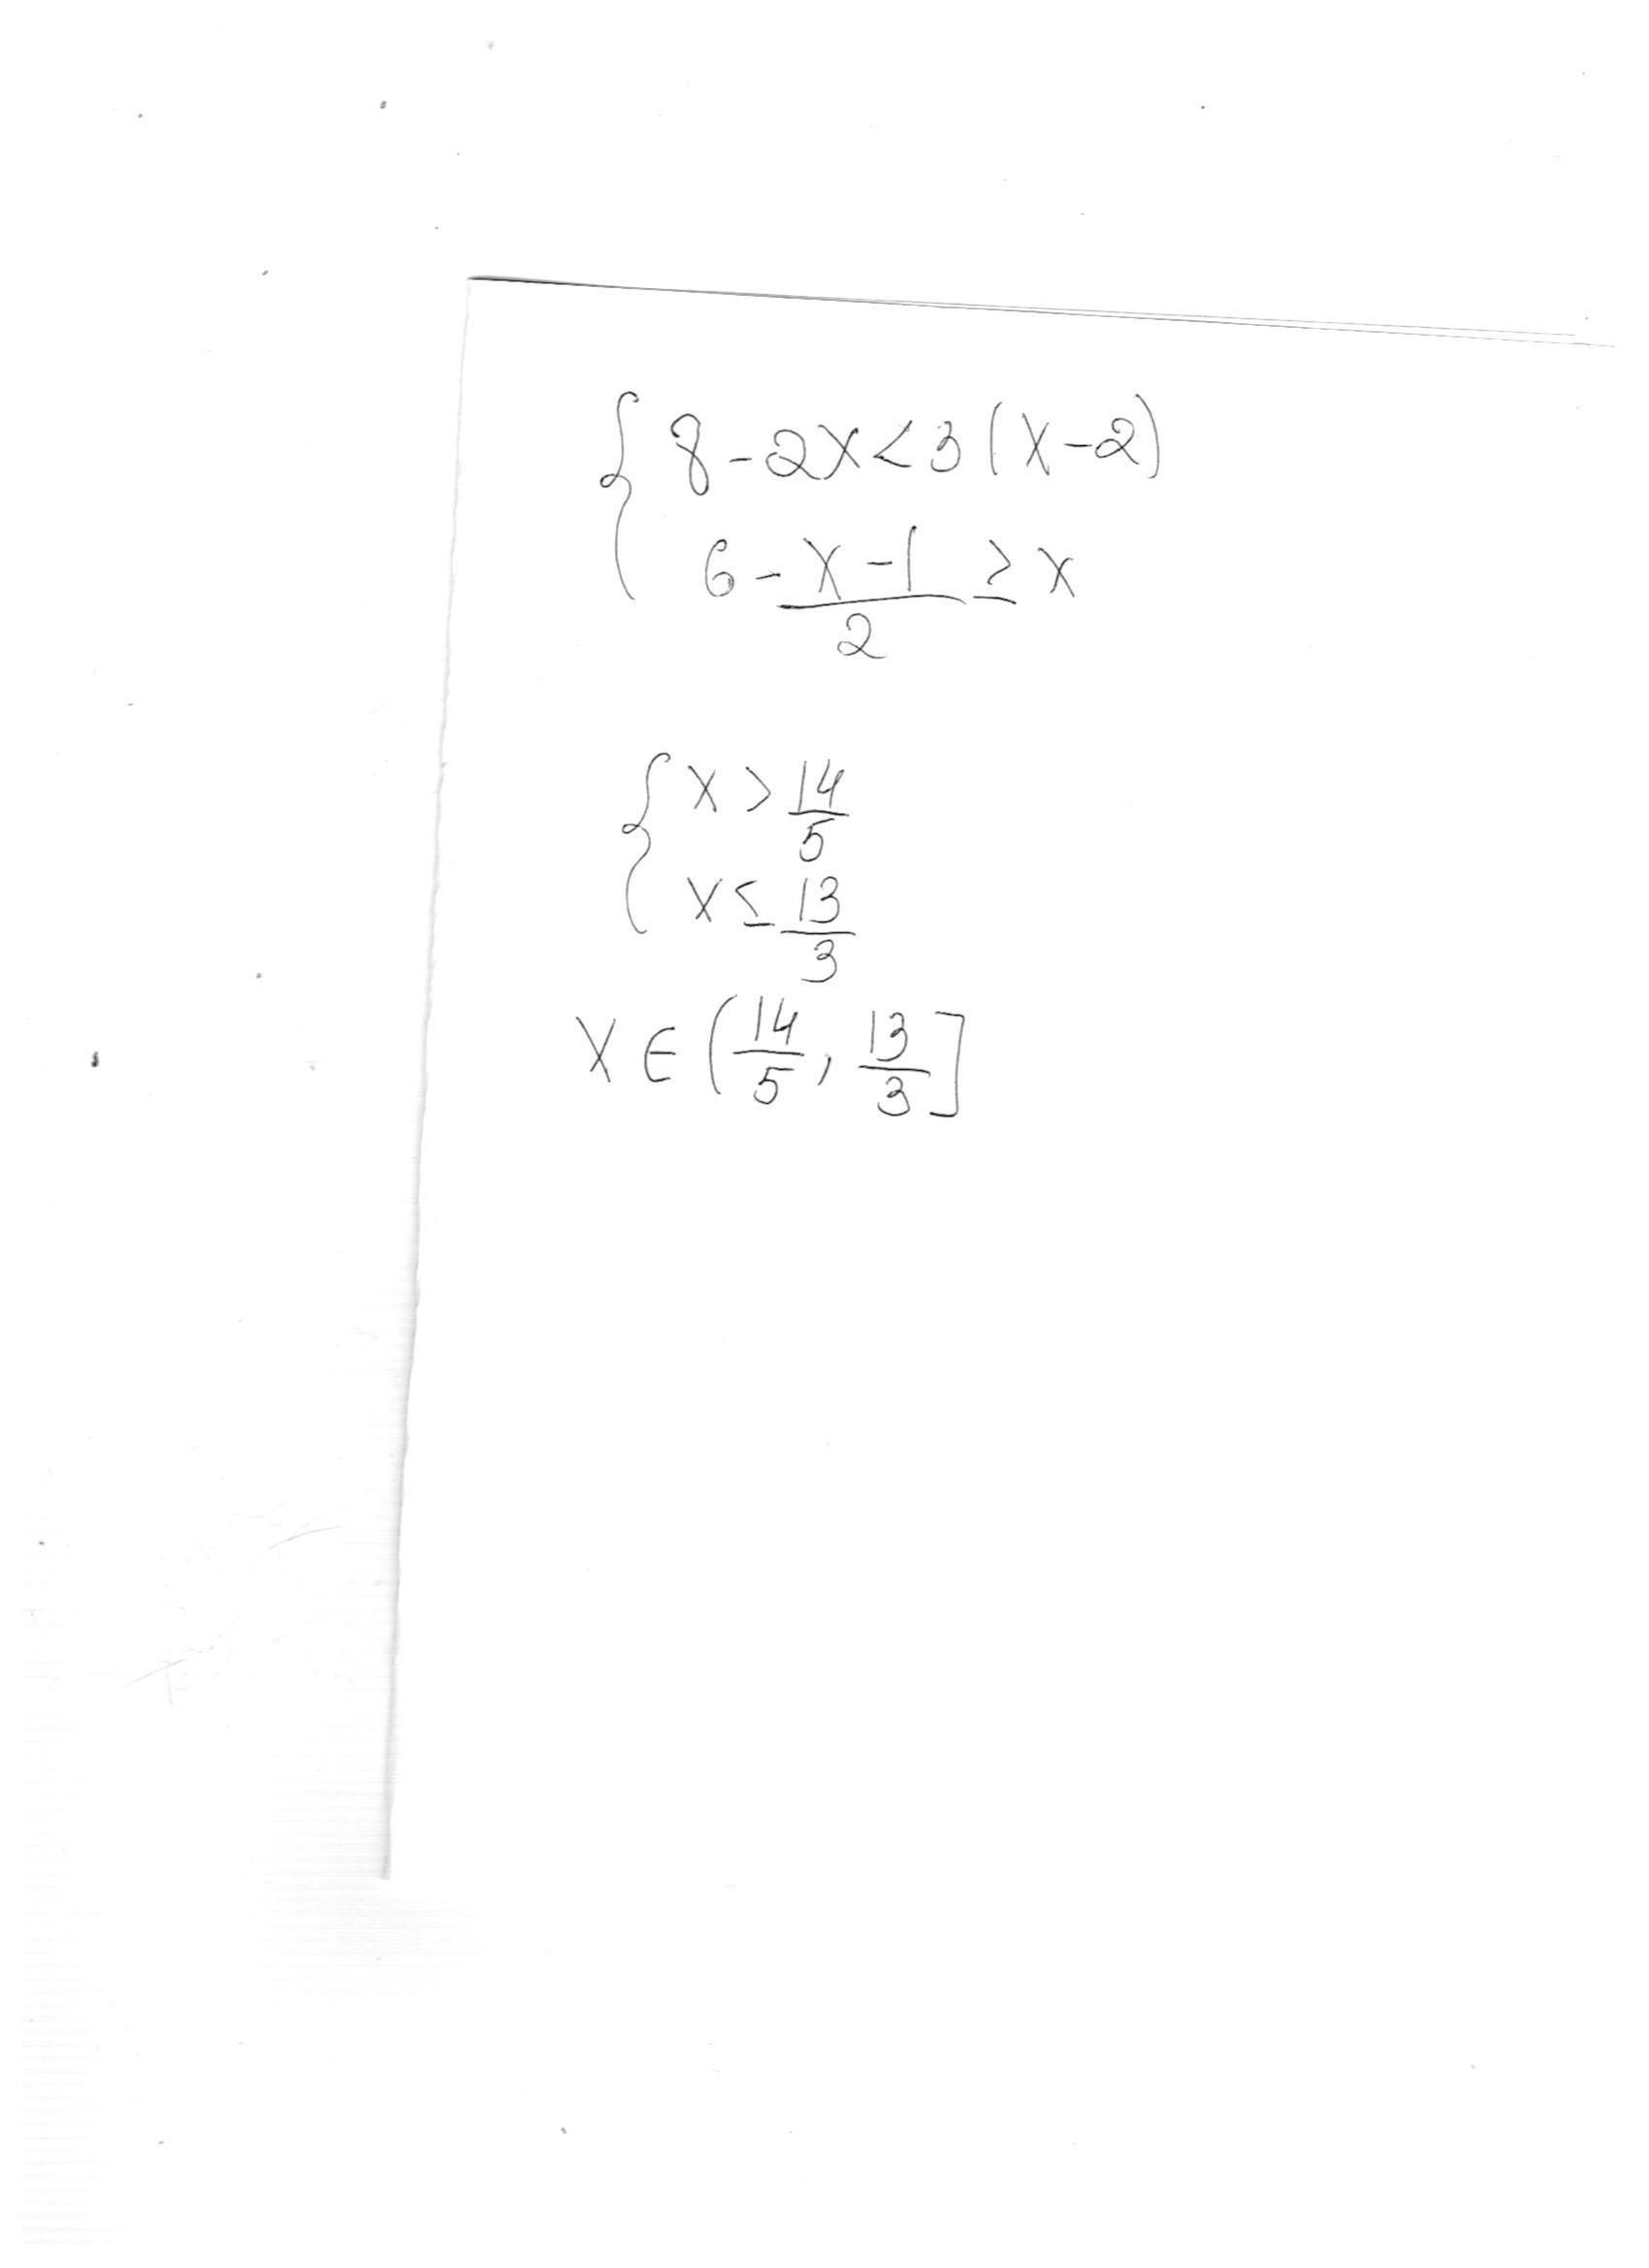 { 8 - 2x < 3(x - 2)
6 - (x - 1)/2 ≥ x
{ x > 14/5
x ≤ 13/3
x ∈ (14/5, 13/3]